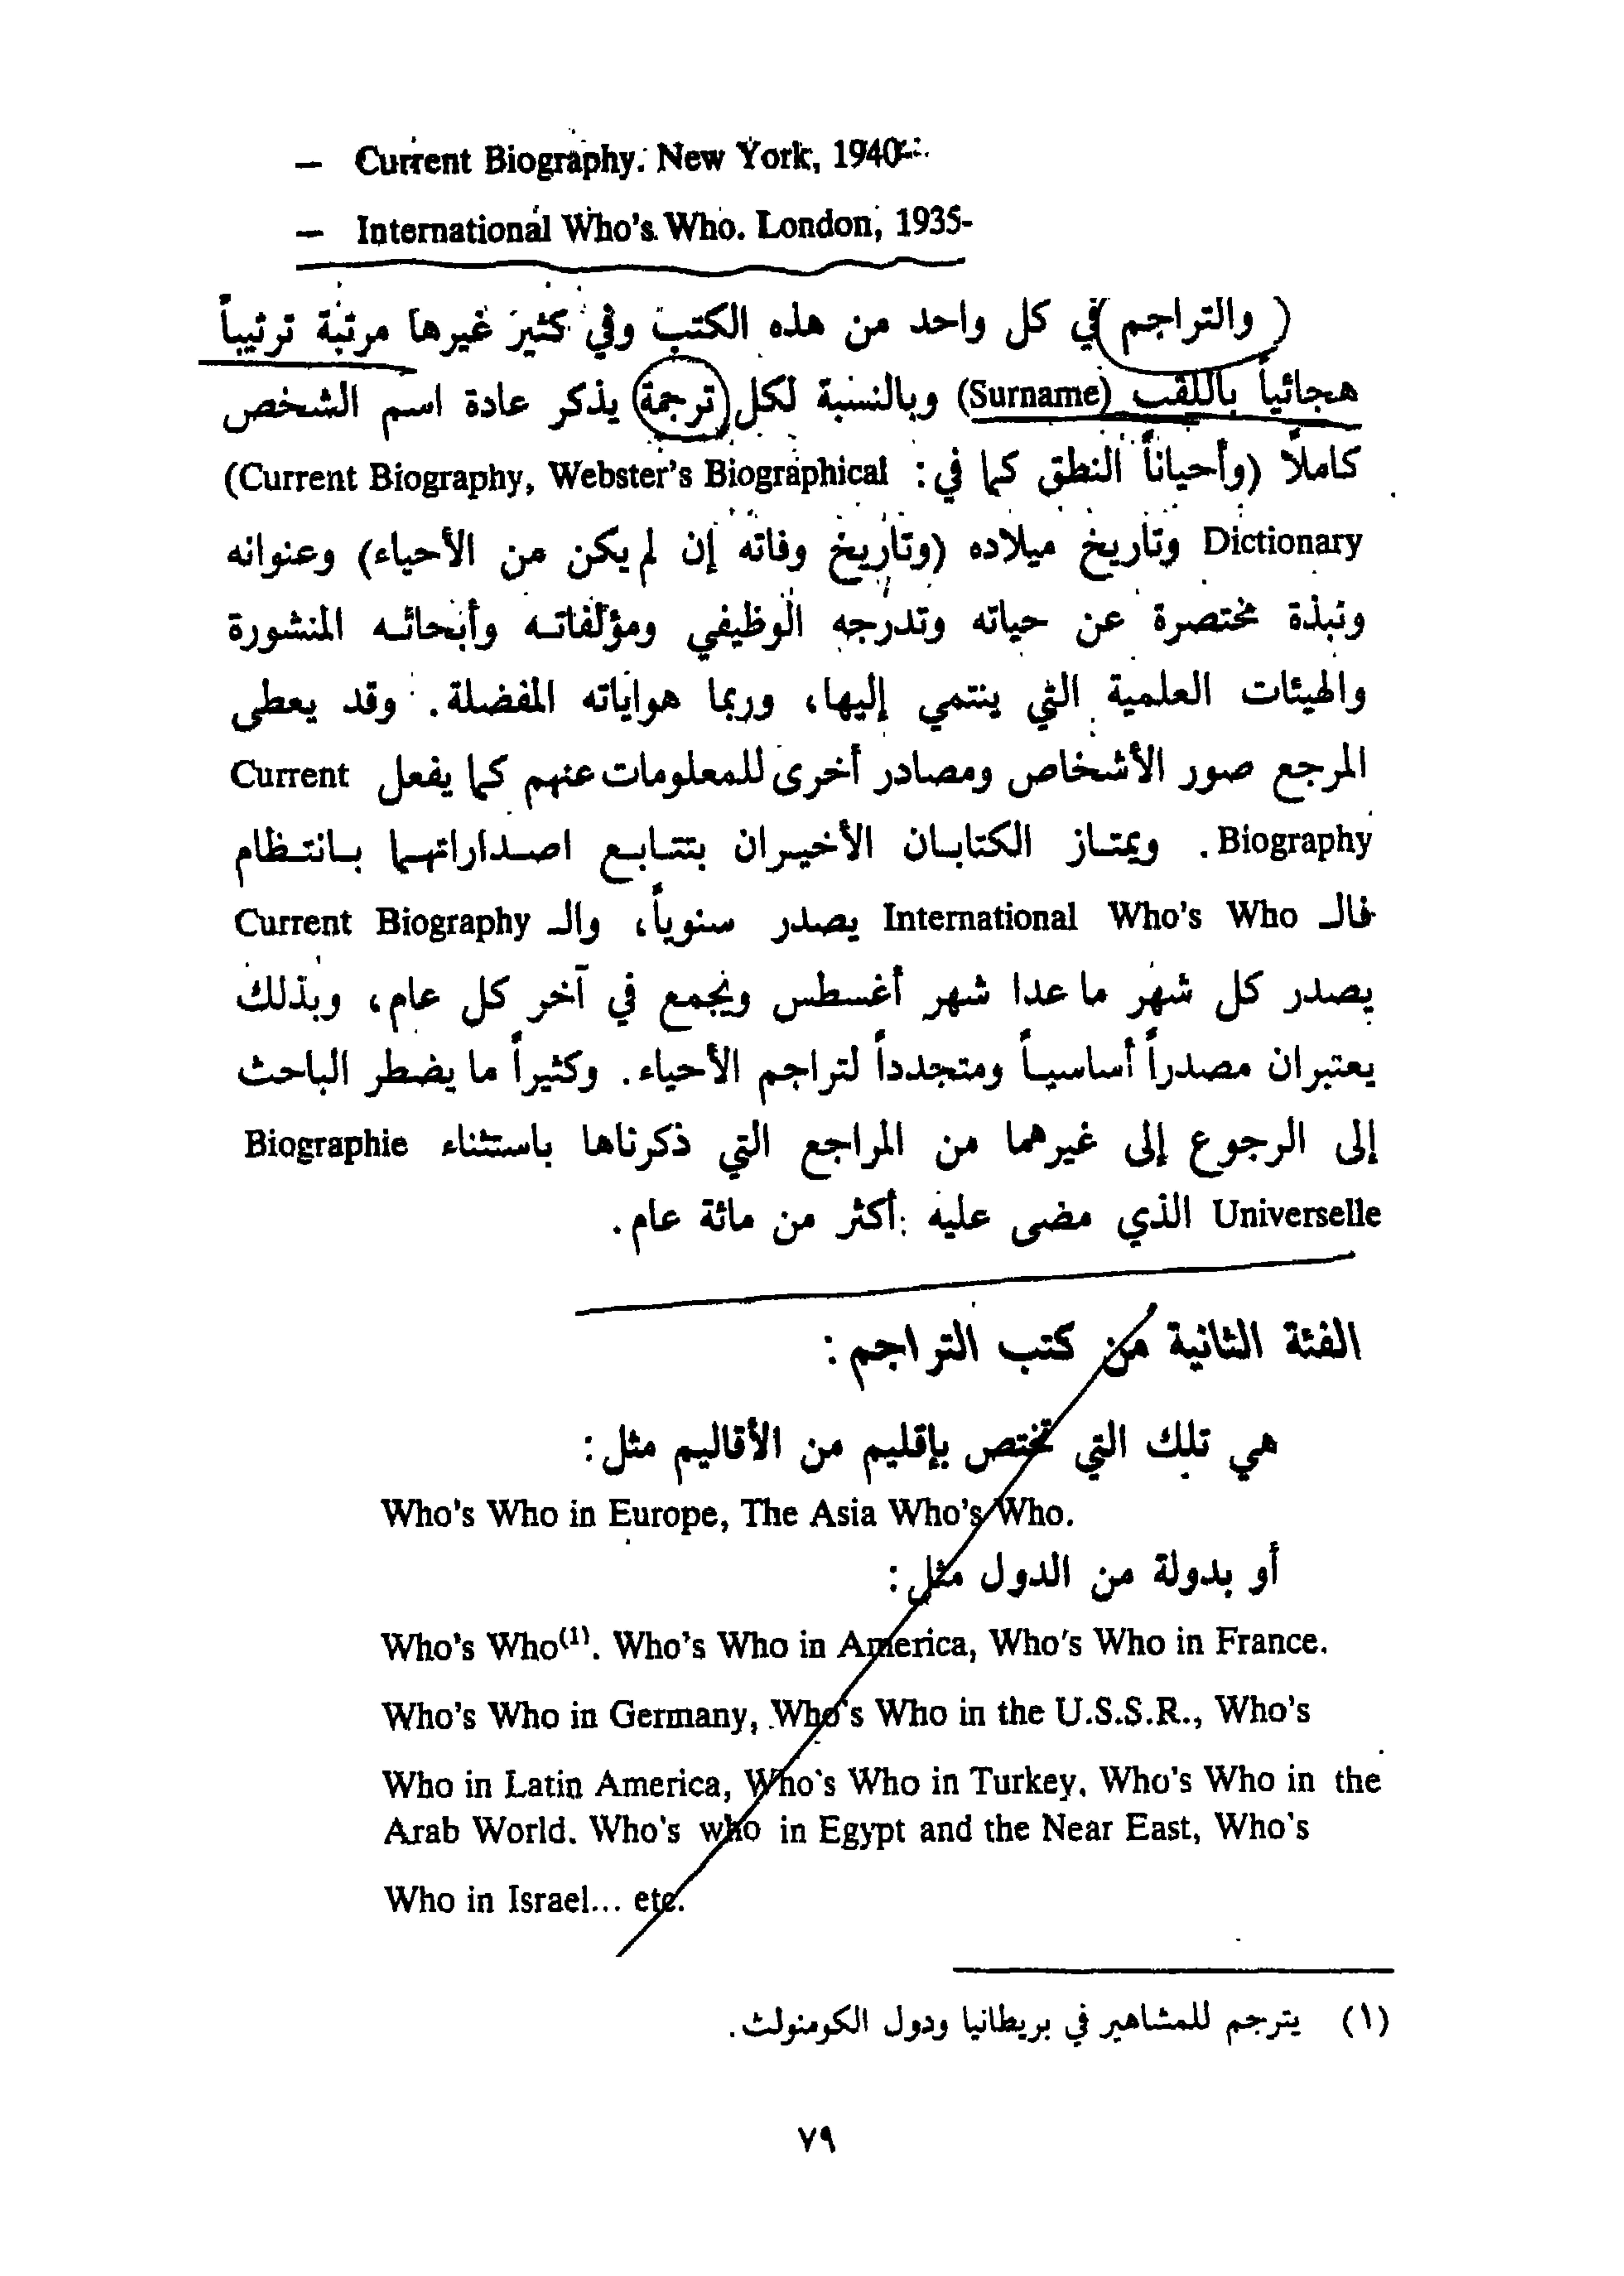 – Current Biography. New York, 1940-
– International Who's Who. London, 1935-
والتراجم في كل واحد من هذه الكتب وفي كثير غيرها مرتبة ترتيباً
هجائياً باللقب (Surname) وبالنسبة لكل ترجمة يذكر عادة اسم الشخص
كاملاً (وأحياناً النطق كما في : Current Biography, Webster's Biographical)
Dictionary وتاريخ ميلاده (وتاريخ وفاته إن لم يكن من الأحياء) وعنوانه
ونبذة مختصرة عن حياته وتدرجه الوظيفي ومؤلفاته وأبحاثه المنشورة
والهيئات العلمية التي ينتمي إليها، وربما هواياته المفضلة. وقد يعطى
المرجع صور الأشخاص ومصادر أخرى للمعلومات عنهم كما يفعل Current
Biography. ويمتاز الكتابان الأخيران بتتابع اصداراتهما بانتظام
فالـ International Who's Who يصدر سنوياً، والـ Current Biography
يصدر كل شهر ما عدا شهر أغسطس ويجمع في آخر كل عام، وبذلك
يعتبران مصدراً أساسياً ومتجدداً لتراجم الأحياء. وكثيراً ما يضطر الباحث
إلى الرجوع إلى غيرهما من المراجع التي ذكرناها باستثناء Biographie
Universelle الذي مضى عليه أكثر من مائة عام.
الفئة الثانية من كتب التراجم :
هي تلك التي تختص بإقليم من الأقاليم مثل :
Who's Who in Europe, The Asia Who's Who.
أو بدولة من الدول مثل :
Who's Who(1). Who's Who in America, Who's Who in France.
Who's Who in Germany, Who's Who in the U.S.S.R., Who's
Who in Latin America, Who's Who in Turkey. Who's Who in the
Arab World. Who's who in Egypt and the Near East, Who's
Who in Israel... etc.
(١) يترجم للمشاهير في بريطانيا ودول الكومنولث.
٧٩